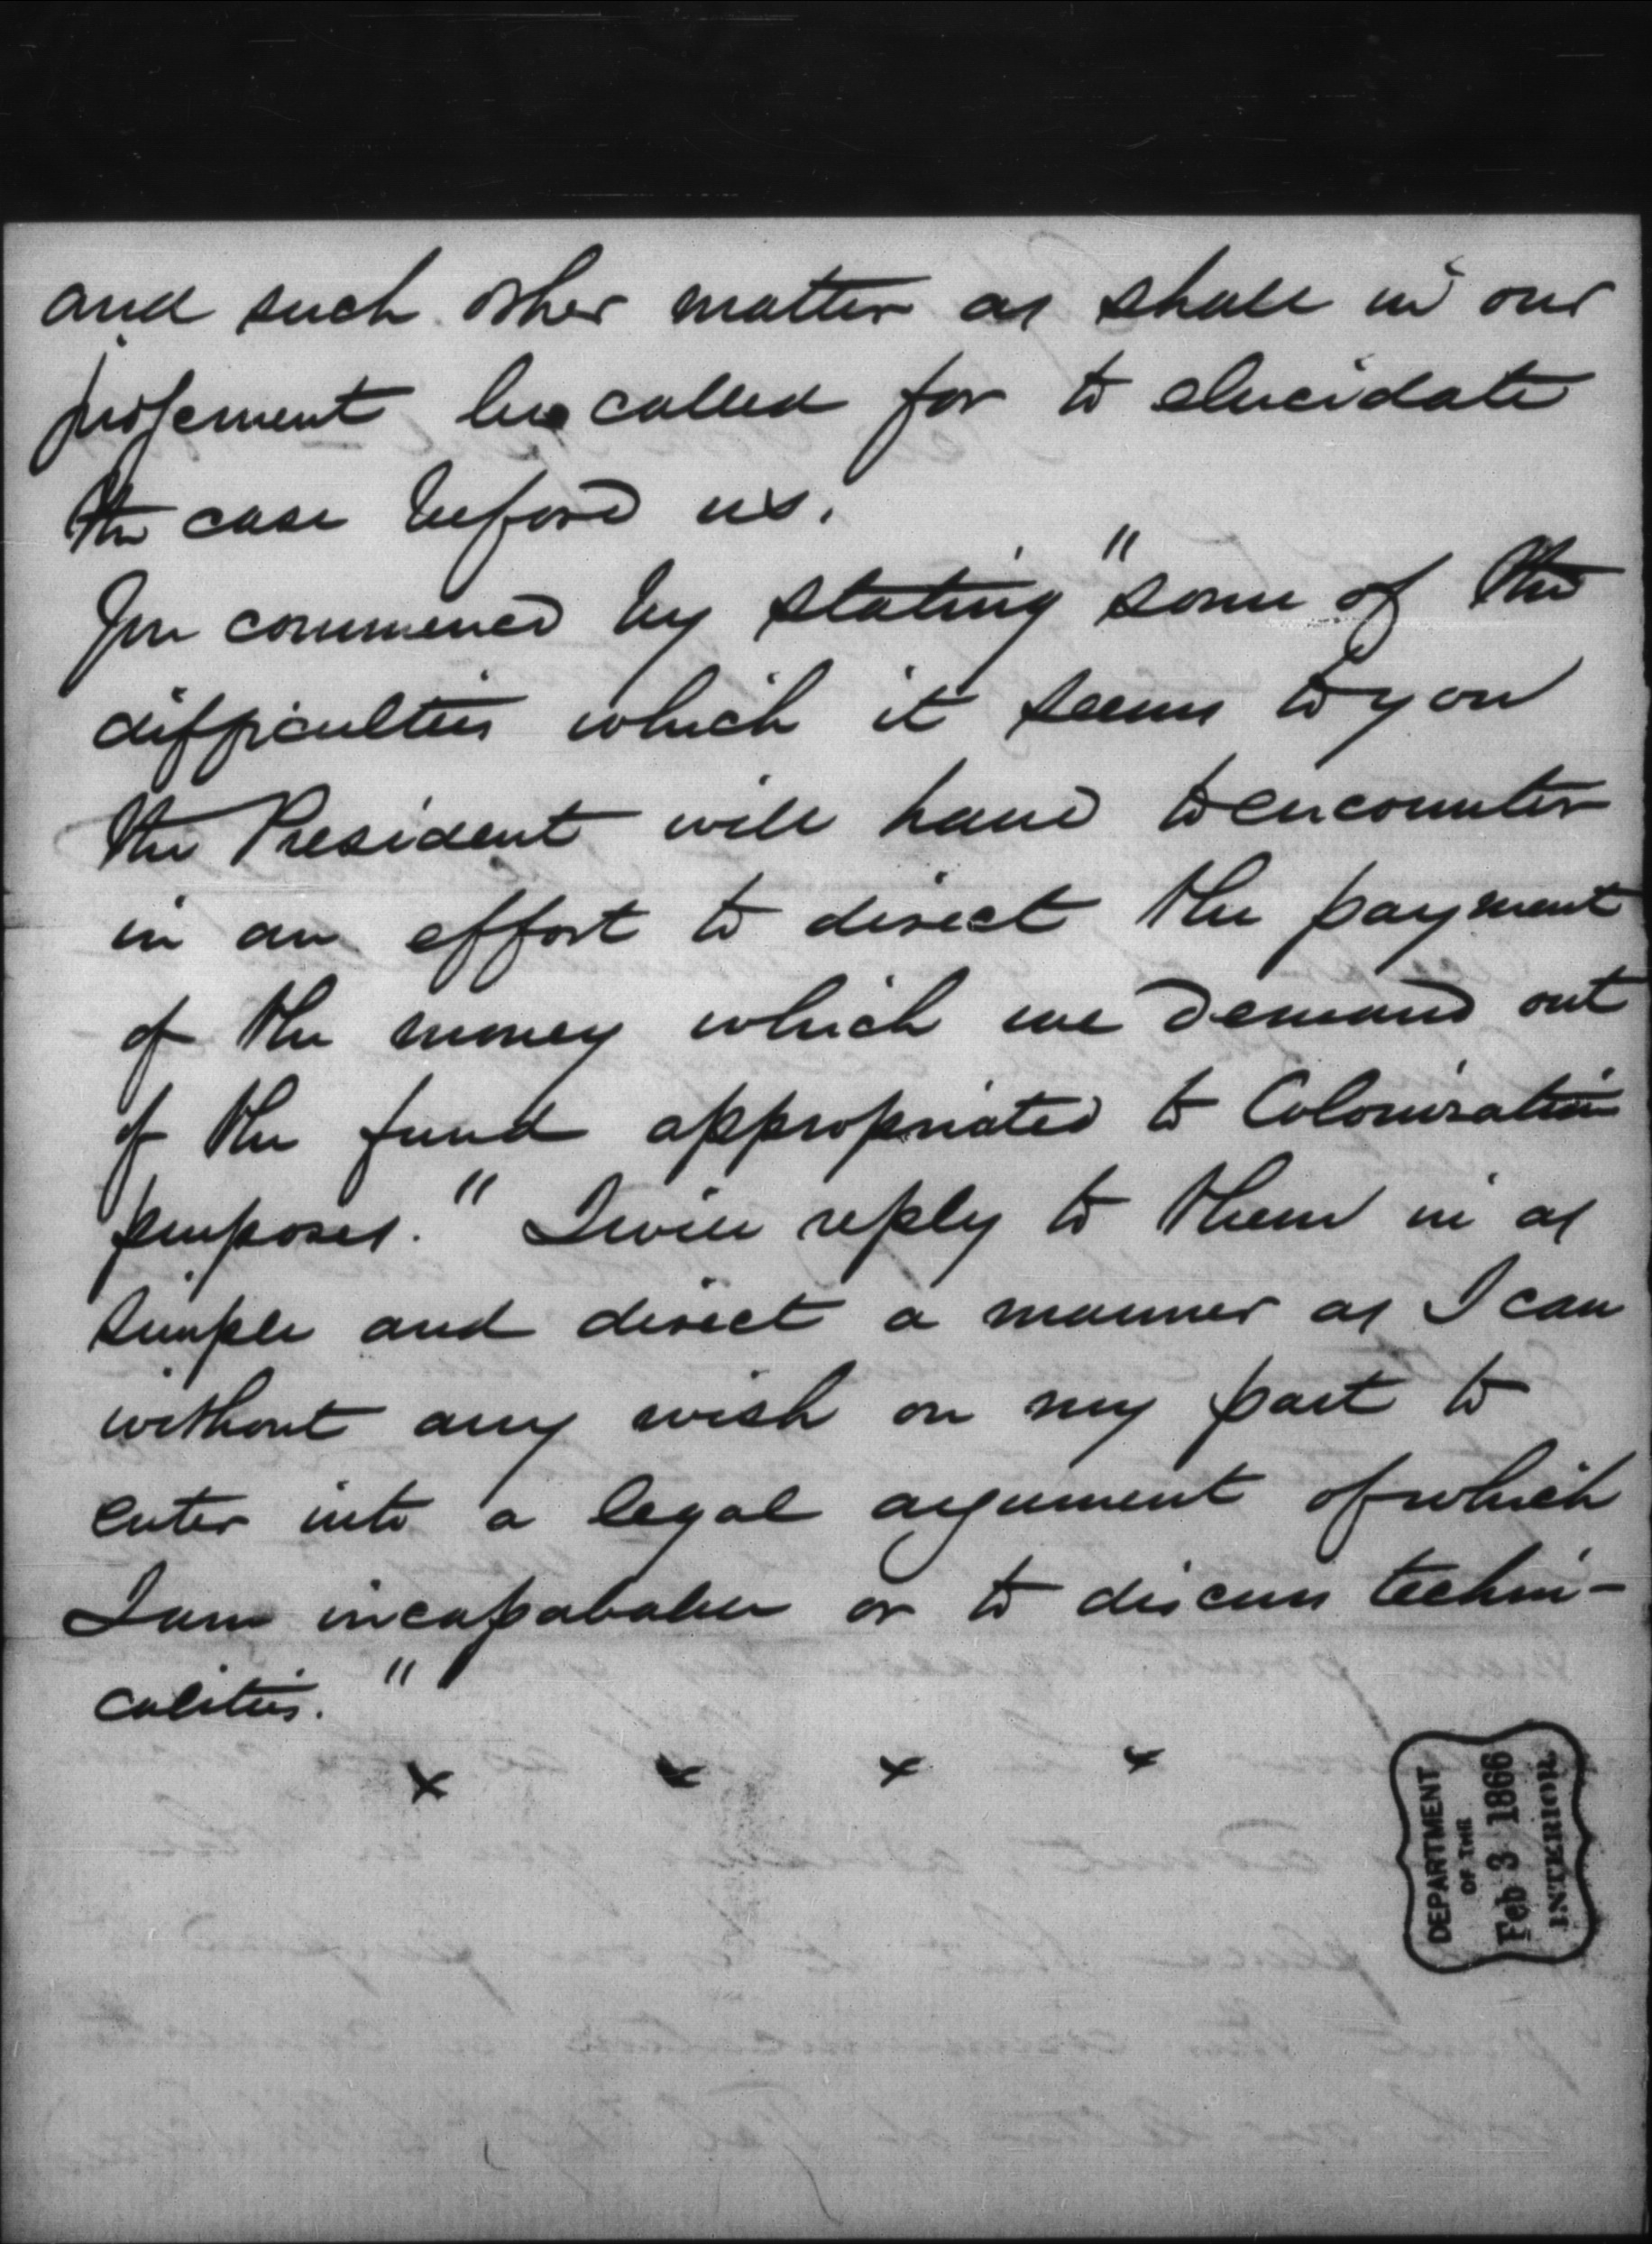 and such other matter as shall in our
judgement be called for to elucidate
the case before us.
You commenced by stating "some of the
difficulties which it seems to you
the President will have to encounter
in an effort to direct the payment
of the money which we demand out
of the fund appropriated to Colonization
purposes." I will reply to them in as
simple and direct a manner as I can
without any wish on my part to
enter into a legal argument of which
I am incapabable or to discuss techni-
calities."
x x x x
DEPARTMENT
OF THE
Feb 3 1866
INTERIOR